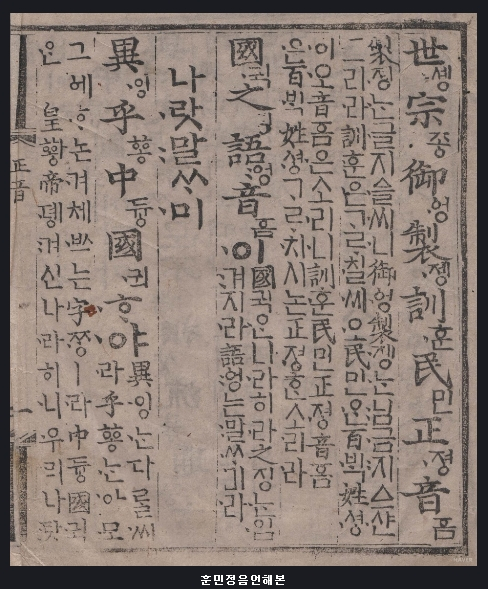 世솅宗종御엉製졩訓훈民민正졍音음
製졩는글지ᅀᅳᆯ씨니御엉製졩는님금지ᅀᅳ샨
그리라訓훈은ᄀᆞᄅᆞ칠씨오民민ᄋᆞᆫ百ᄇᆡᆨ姓셩
이오音음은소리니訓훈民민正졍音음
은百ᄇᆡᆨ姓셩ᄀᆞᄅᆞ치시논正졍ᄒᆞᆫ소리라
國귁之징語엉音음이
國귁ᄋᆞᆫ나라히라之징는입
겨지라語엉는말ᄊᆞ미라
나랏말ᄊᆞ미
異잉乎ᅘᅩᆼ中듕國귁ᄒᆞ야
異잉는다ᄅᆞᆯ씨
라乎ᅘᅩᆼ는아모
그ᅌᅦᄒᆞ논겨체ᄡᅳ는字ᄍᆞᆼㅣ라中듕國귁
ᄋᆞᆫ皇ᅘᅪᆼ帝뎽겨신나라히니우리나랏
正音
훈민정음언해본